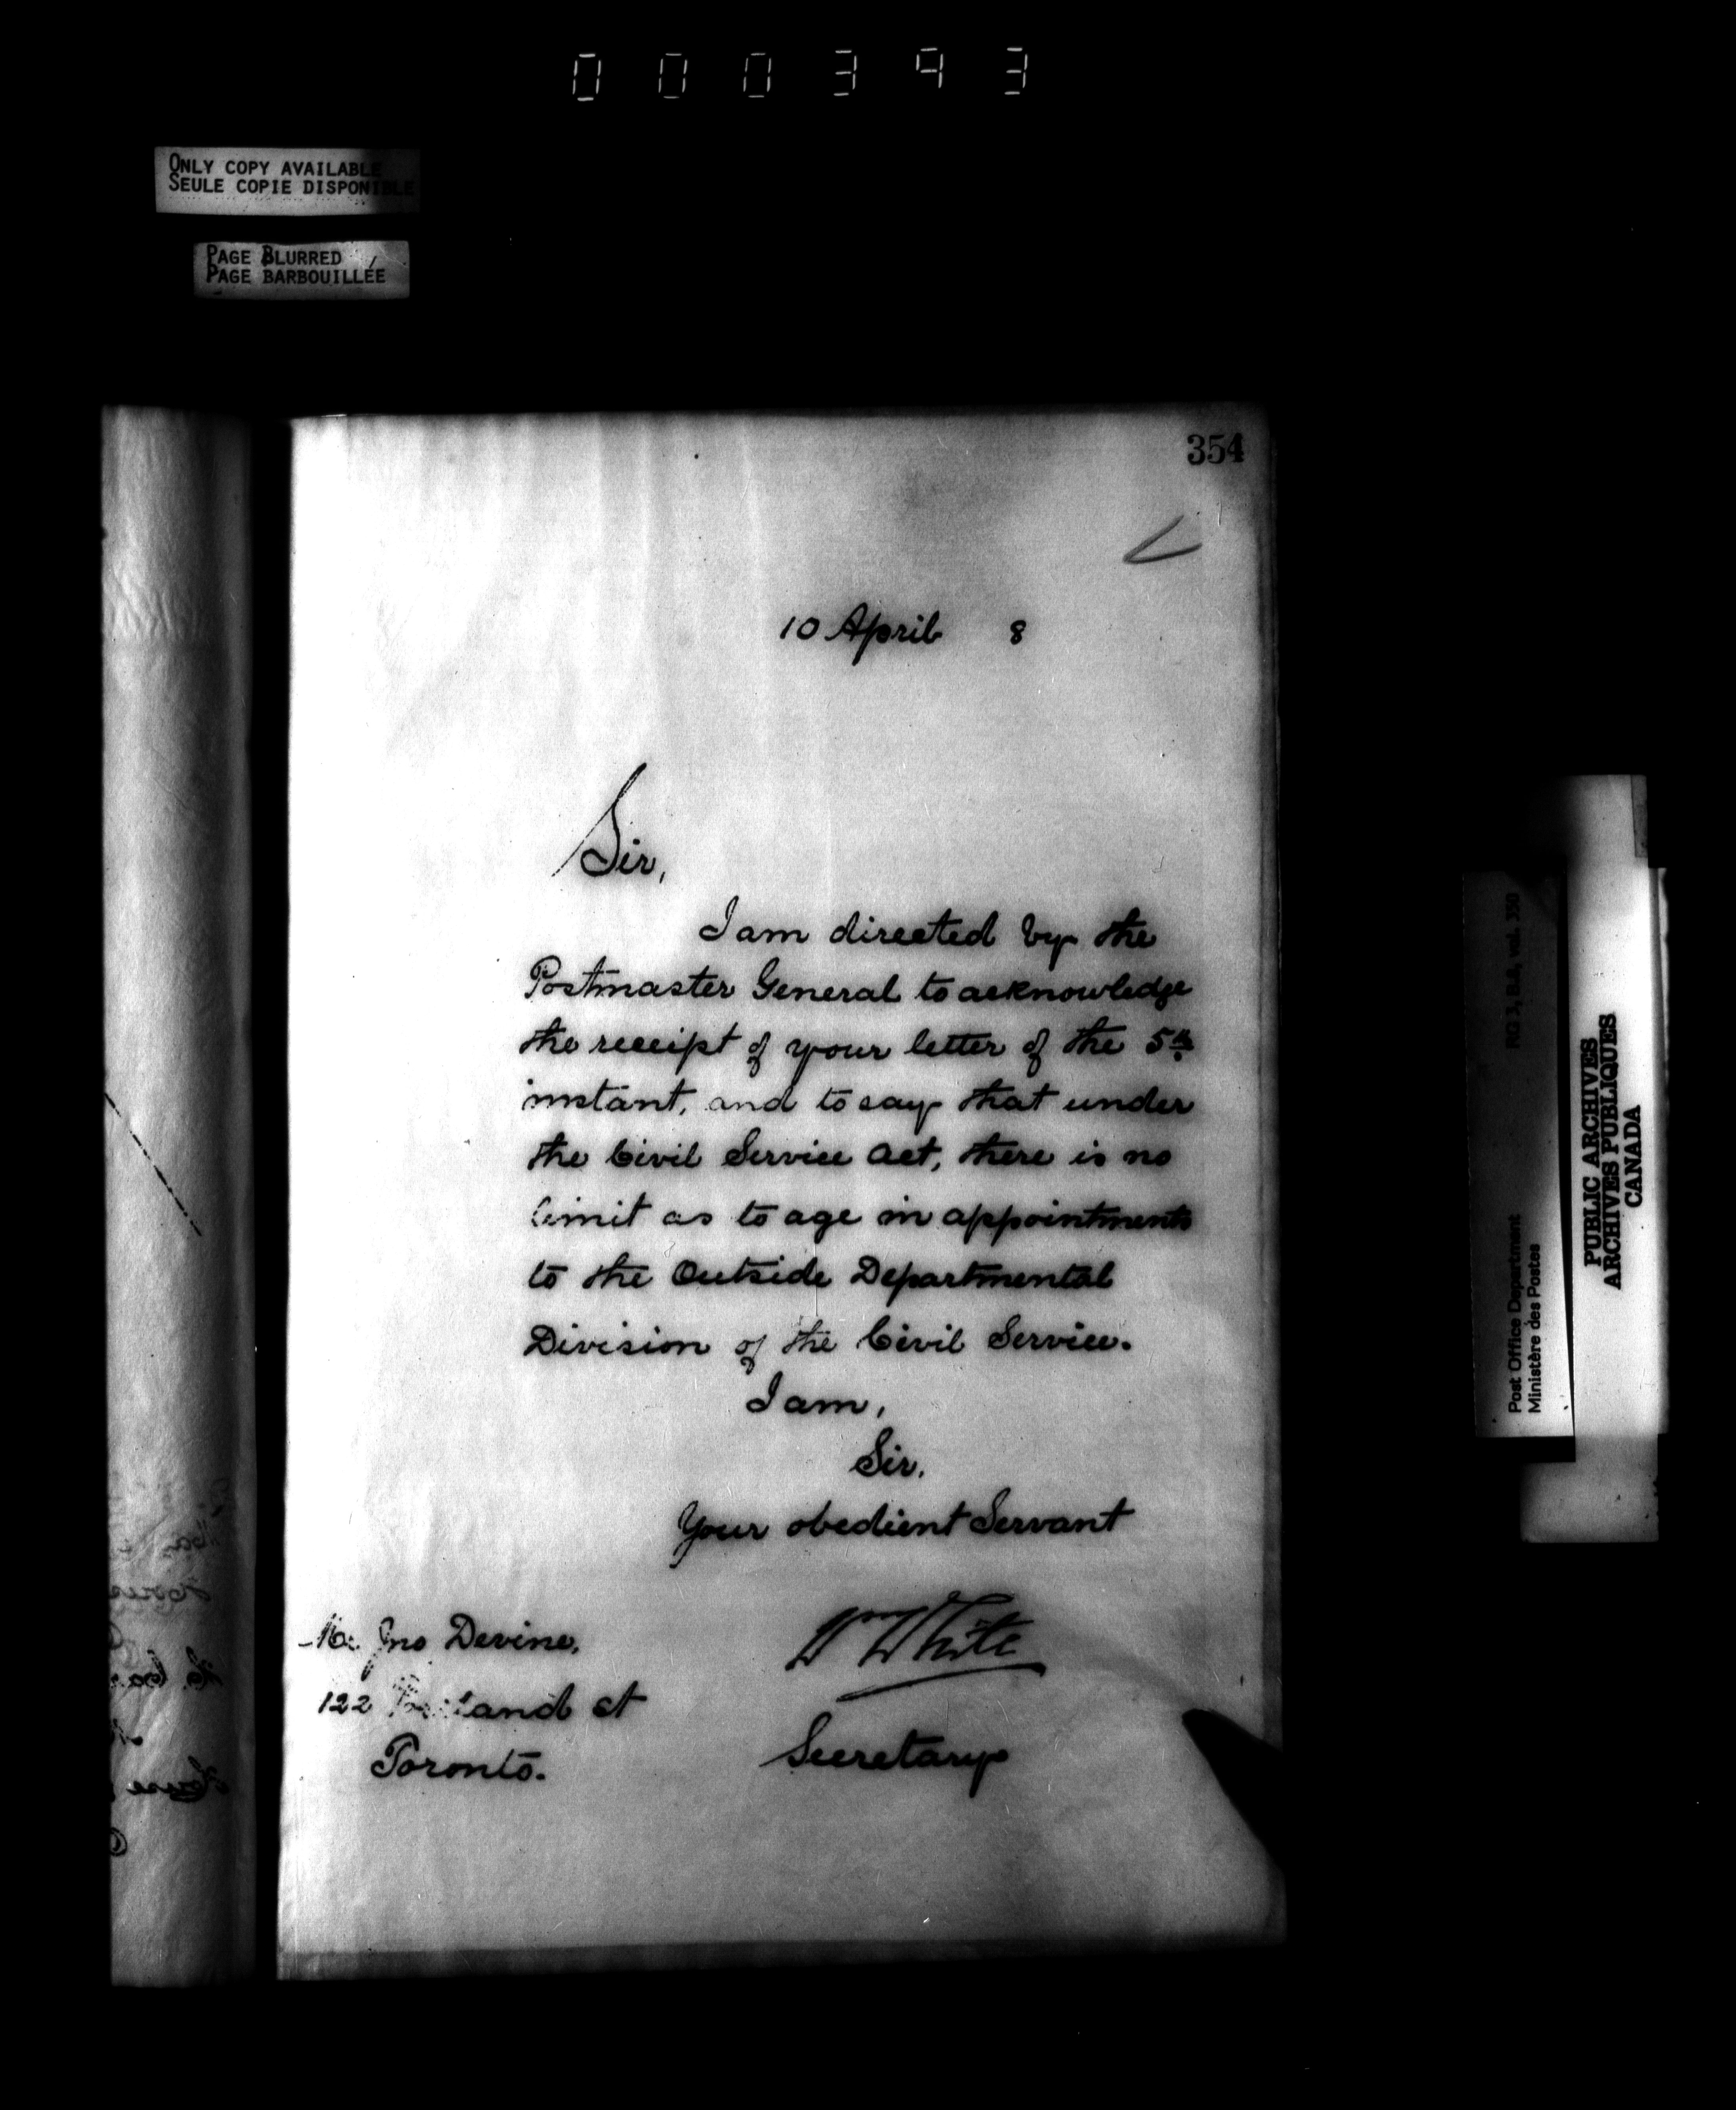 000343
ONLY COPY AVAILABLE
SEULE COPIE DISPONIBLE
PAGE BLURRED
PAGE BARBOUILLÉE
354
10 April 8
Sir,
I am directed by the
Postmaster General to acknowledge
the receipt of your letter of the 5th
instant, and to say that under
the Civil Service Act, there is no
limit as to age in appointments
to the Outside Departmental
Division of the Civil Service.
I am,
Sir.
Your obedient Servant
Mr. Jno Devine,
Wm White
122 st
Toronto.
Secretary
RG 3, D.6, vol. 350
Post Office Department
Ministère des Postes
PUBLIC ARCHIVES
ARCHIVES PUBLIQUES
CANADA